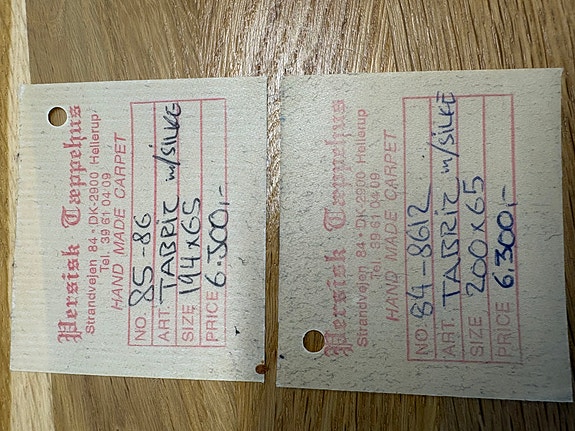 Persisk Tæppehus
Strandvejen 84 • DK-2900 Hellerup
Tel. 39 61 04 09
HAND MADE CARPET
NO. 85-86
ART. TABRIZ m/SILKE
SIZE 194x65
PRICE 6.300,-
Persisk Tæppehus
Strandvejen 84 • DK-2900 Hellerup
Tel. 39 61 04 09
HAND MADE CARPET
NO. 84-8612
ART. TABRIZ m/SILKE
SIZE 200x65
PRICE 6.300,-